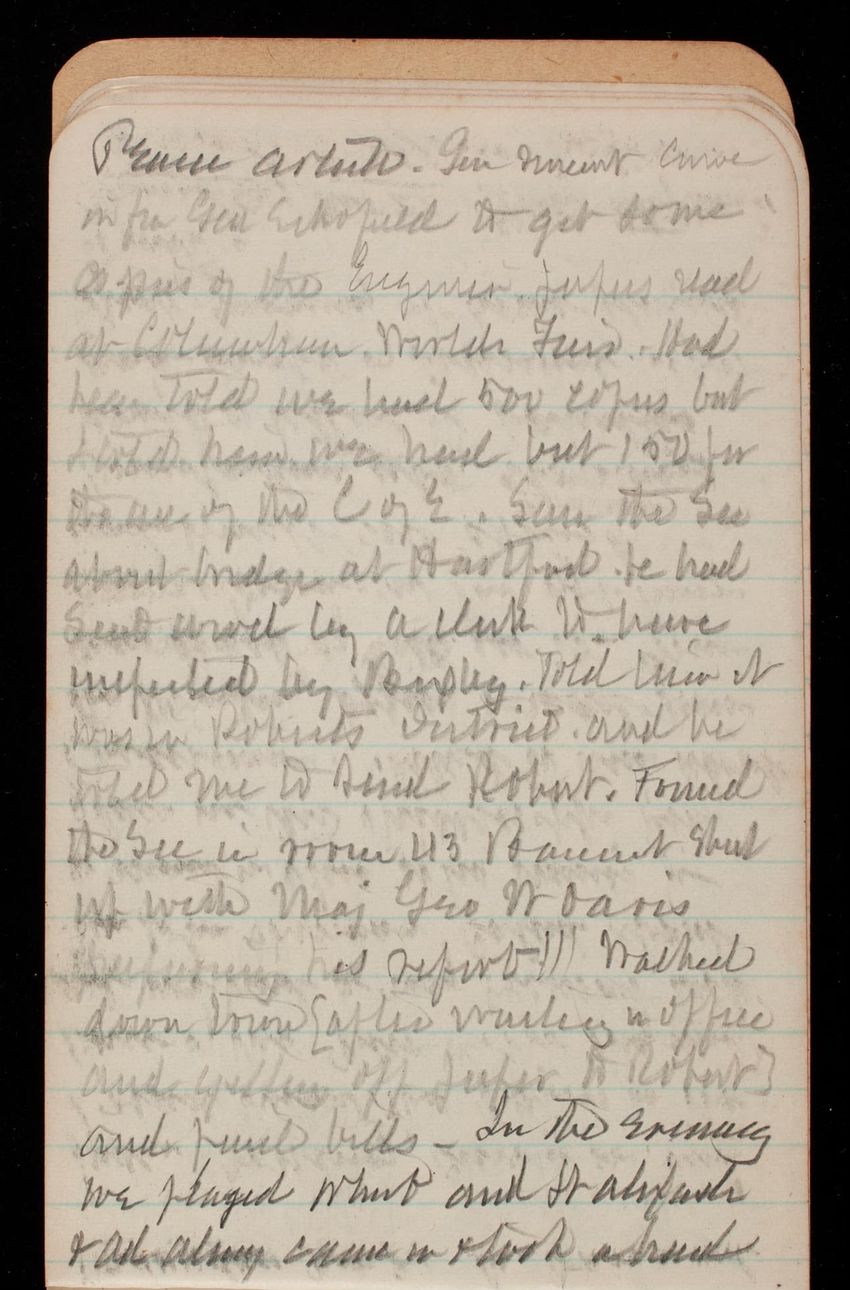 Gen Vincent came
in for Gen Schofield to get some
copies of the Engineer papers read
at Columbian Worlds Fair. Had
been told we had 500 copies but
I told him we had but 150 for
the use of the C of E. Saw the Sec
about bridge at Hartford. he had
Sent word by a clerk to have
inspected by Bixby. Told him it
was in Roberts District and he
told me to send Robert. Found
the Sec in room 43 Basement shut
up with Maj Geo W Davis
preparing his report!!! Walked
down town [after waiting in office
and getting off papers to Robert]
and paid bills - In the evening
we played whist and
& Ad came in & took a hand